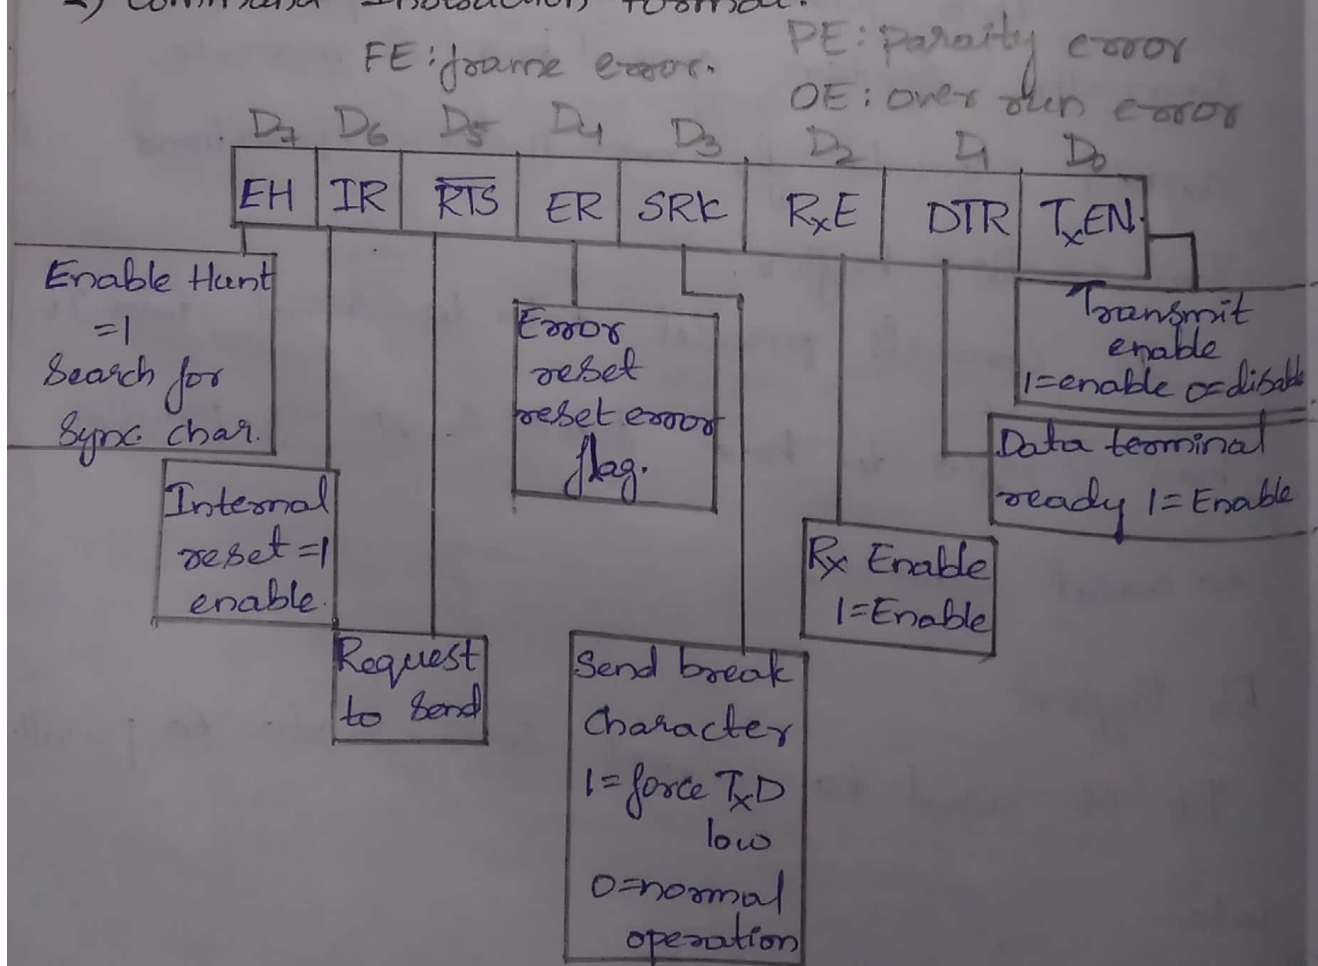 2) Command Instruction format:
FE: frame error.
PE: paraity error
OE: over run error
D7 D6 D5 D4 D3 D2 D1 D0
EH IR R̅T̅S̅ ER SRK RxE DTR TxEN
Enable Hunt
=1
Search for
Sync. char.
Internal
reset =1
enable.
Request
to send
Error
reset
reset error
flag.
Send break
Character
1= force TxD
low
0=normal
operation
Rx Enable
1=Enable
Data terminal
ready 1= Enable
Transmit
enable
1=enable 0=disable